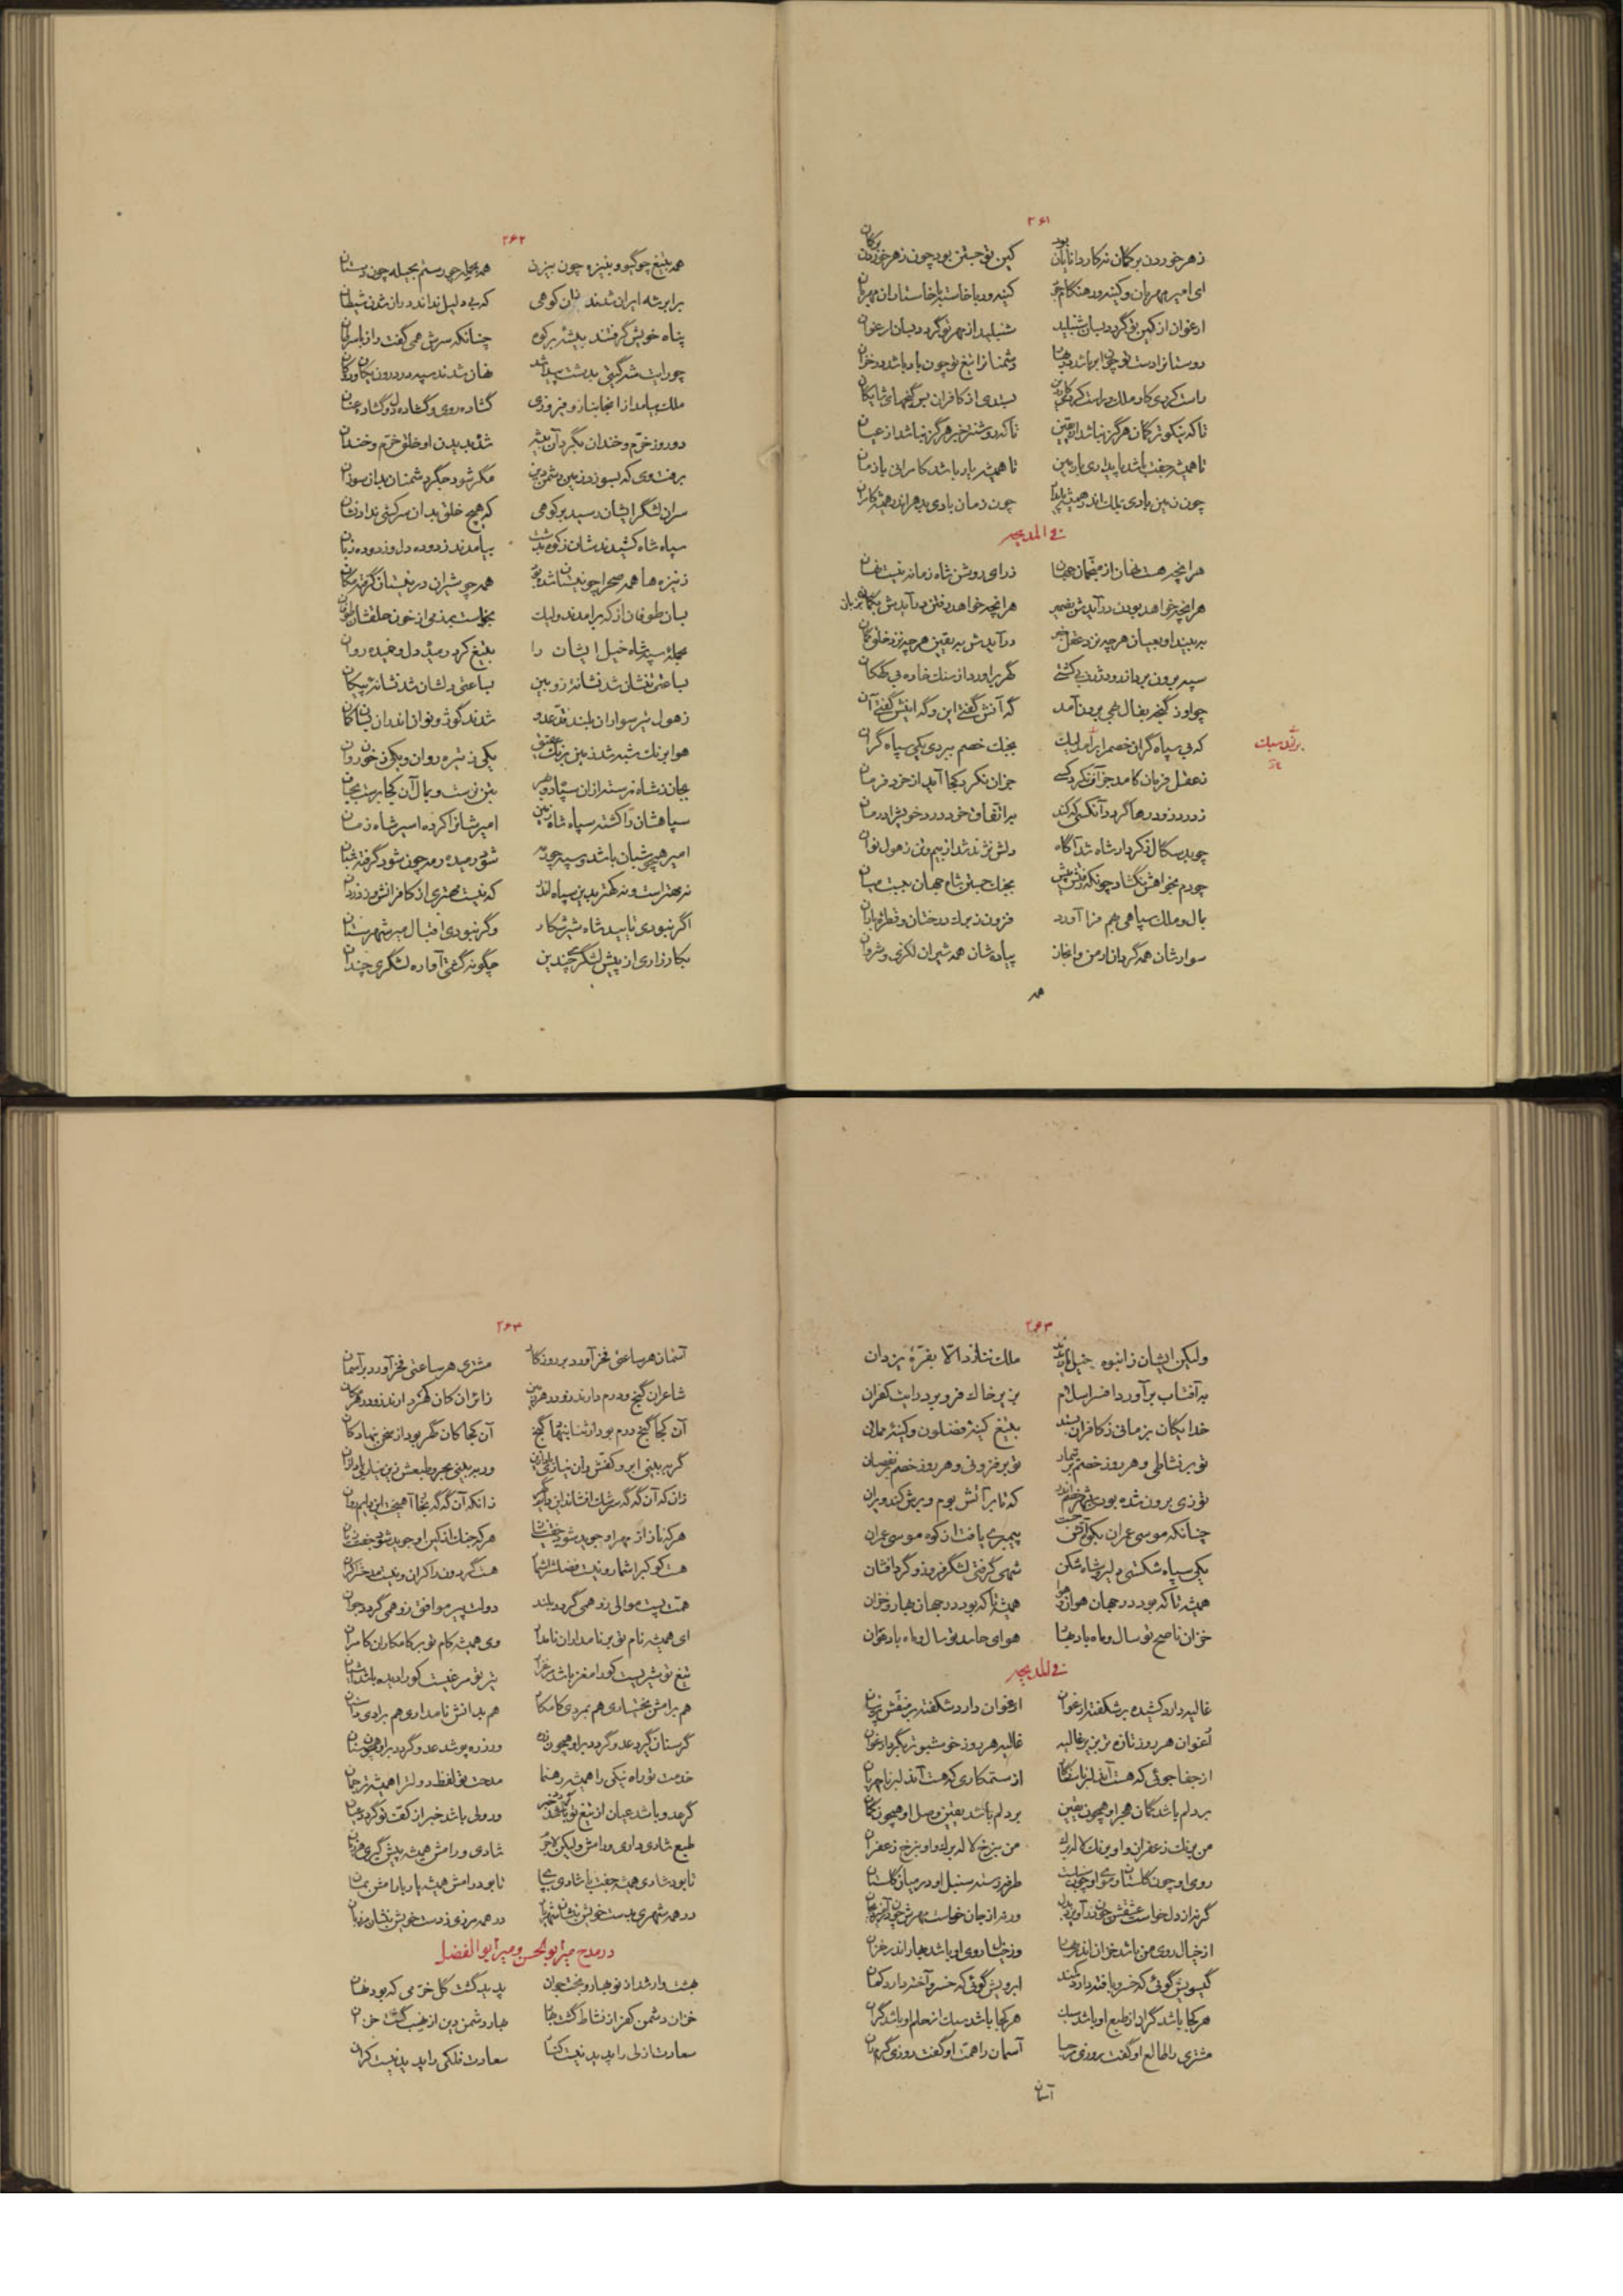 ۲۶۱
زهر خوردن بر گمان نه کار دانایان بود کین تو جستن بود چون زهر خوردن بر گمان
ای امیر مهربان و کینه ور هنگام کینه ور با خاسته با خاستاران مهربان
ارغوان از کین تو گردد بسان شنبلید شنبلید از مهر تو گردد بسان ارغوان
دوستانرا دست تو چون ابر باشد در بهار دشمنانرا تیغ تو چون باد باشد در خزان
راست کردی کار ملک و راست کردی کار دین بستدی از کافران بس گنجهای شایگان
تا که نیکوتر گمان هرگز نباشد از یقین تا که روشنتر خبر هرگز نباشد از عیان
تا همیشه جفت باشد پایداری با زمین تا همیشه یار باشد کامرانی با زمان
چون زمین بادی بملک اندر همیشه پایدار چون زمان بادی بدهر اندر همیشه کامران
فی المدیحه
هر آنچه هست نهان از مقیمان جهان ز رای روشن شاه زمانه نیست نهان
هر آنچه خواهد بودن در آیدش بضمیر هر آنچه خواهد رفتن در آیدش بزبان
به بیند او بعیان هر چه نزد عقل خبر در آیدش به یقین هر چه نزد خلق گمان
سپه برون برد از رود ژرف بی کشتی گهر برآورد از سنگ خاره بی کان
چو او ز گنجه بفال بهی برون آمد گه آنش گفتی این و گه اینش گفتی آن
که بی سپاه گران خصم را بر آمد لیک بجنگ خصم نبردی یکی سپاه گران
ز عقل فرمان کامد جز آن نکرد کسی جز آن نکرد کجا آمد از خرد فرمان
ز درد زود رها گردد آنکسی که کند بر اتفاق خرد درد خویش را درمان
چو بدسگال ز کردار شاه شد آگاه دلش نژند شد از بیم و تن ز هول نوان
چو دم نخواهش نگشاد چونکه رفتش پیش بجنگ جستن شاه جهان ببست میان
بمال و ملک سپاهی بهم فراز آورد فزون ز برگ درختان و قطره باران
سوارشان همه گردان ارمن و ابخاز پیاده شان همه شیران لکزی و شروان
همه
۲۶۲
همه بتیغ چو گیو و بنیزه چون بیژن همه بحمله چو رستم بحیله چون دستان
برابر شه ایران شدند بر کوهی که بی دلیل نداند در آن شدن شیطان
پناه خویش گرفتند بیشه بر کوه چنانکه سرش همی گفت راز با سرطان
چو رایت شه گیتی بدشت پیدا شد نهان شدند سپه در درون
ملک بیامد از آنجا بناز و فیروزی گشاده روی و گشاده دل و گشاده عنان
دو روز خرم و خندان بگرد آن بیشه شده بدیدن او خلق خرم و خندان
برفت وی که بسوزد زمین دشمن دین مگر شود جگر دشمنان بدان سوزان
سران لشگر ایشان رسید بر کوهی که هیچ خلق بدان سرکشی نداد نشان
سپاه شاه کشیدند شان ز کوه بدشت بیامدند زدوده دل و زدوده زبان
ز نیزه ها همه صحرا چو نیستان شده بود همه چو شیران در نیستان گرفته مکان
بسان طوفان از که برامدند ولیک بخواست بر زمی از خون حلقشان طوفان
بحملۀ سپه شاه خیل ایشان را بتیغ کرد رمیده دل و خمیده روان
بساعتی تنشان شد نشانۀ زوبین بساعتی دلشان شد نشانۀ پیکان
ز هول تیر سواران بلند قد عدو شدند گوژ و نوان اندران بسان کمان
هوا برنگ شبه شد زمین برنگ عقیق یکی ز تیره روان و یکی ز خون روان
بجان ز شاه نرسته از آن سپاه دویر بتن برست و بمال آن کجا برست بجان
سپاهشان را کشته سپاه شاه زمین امیرشان را کرده اسیر شاه زمان
امیر هیچو شبان باشد و سپه چو رمه شود رمیده رمه چون شود گرفته شبان
نه بهتر است و نه کمتر بدین سپاه اندر که نیست بهتری از کافرانش در زندان
اگر نبودی تایید شاه شیر شکار و گر نبودی اقبال میر شهرستان
بکارزاری از پیش لشگری چندین چگونه گشتی آواره لشگری چندان
۲۶۳
ولیکن ایشان ز انبوه خیل ملک ننازد الا بفرّۀ یزدان
به آفتاب برآورد افسر اسلام بزیر خاک فرو برد رایت کفران
خدایگان بزمانی ز کافران بستد بتیغ کینۀ فضلون و کینۀ مملان
تو بر نشاطی و هر روز خصم بر تیمار تو بر فزونی و هر روز خصم بر نقصان
تو زی برون شده بودی بشهر خصم اندر که تا بر آتش بوم و برش کند ویران
چنانکه موسی عمران بکوه آتش جست پیمبری یافت از کوه موسی عمران
یکی سپاه شکستی دلیر و شاه شکن شهی گرفتی لشگر فروز و گرد افشان
همیشه تا که بود در جهان هوا همیشه تا که بود در جهان بهار و خزان
خزان ناصح تو سال و ماه باد بهار هوای حاسد تو سال و ماه باد خزان
فی المدیحه
غالیه دارد کشیده بر شکفته ارغوان ارغوان دارد شکفته بر بنفش پرنیان
ارغوان هر روز تازه تر بزیر غالیه غالیه هر روز خوشبوتر بگرد ارغوان
از جفا جوئی که هست آن دلبر نا سازگار از ستمکاری که هست آن دلبر نا مهربان
بر دلم باشد گمان هجر او همچون یقین بر دلم باشد یقین وصل او همچون گمان
من برنگ زعفران و او برنگ لاله برگ من برخ لاله برگ و او برخ زعفران
روی او چون گلستان و موی او چون طرفه رسته سنبل او در میان گلستان
گر نه از دل خواست عشقش چون ور نه از جان خواست مهرش چون
از خیال روی من باشد خزان اندر بهار وز خیال روی او باشد بهار اندر خزان
گیسویش گوئی که خسرو بافته دارد کمند ابرویش گوئی که خسرو آخته دارد کمان
هر کجا باشد گران از طبع او باشد سبک هر کجا باشد سبک از حلم او باشد گران
مشتری را طالع او گفت روزی مرحبا آسمان را همت او گفت روزی گرم ران
آسمان
۲۶۴
آسمان هر ساعتی فخر آورد بر روزگار مشتری هر ساعتی فخر آورد بر آسمان
شاعران گنج و درم دارند زو در هر زمین زائران کان گهر دارند زو در هر مکان
آن کجا گنج درم بود از ثنا بنهاد گنج آن کجا کان گهر بود از سخن بنهاد کان
گر به بینی ابر و کفش زان نیاری یاد ازین ور به بینی بحر و طبعش زین نیاری یاد از آن
زانکه آن گه گه سرشک افشاند این زانکه آن گه گه بخار آهیخت
هر که ناز از مهر او جوید شود هر که جنگ از کین او جوید شود جفت زیان
هست کوکب را شمار و نیست فضلش را شمار هست گردون را کران و نیست مدحش را کران
همت پست موالی زو همی گردد بلند دولت پیر موافق زو همی گردد جوان
ای همیشه نام تو بر نامداران نامدار وی همیشه کام تو بر کامکاران کامران
تیغ تو شیریست کورا مغز باشد مرغزار تیر تو مرغیست کورا دیده باشد آشیان
هم برامش بختیاری هم بمردی کامکار هم بدانش نامداری هم برادی داستان
گر سنان گیرد عدو گردد بر او همچون زره ور زره پوشد عدو گردد بر او همچون سنان
خدمت تو راه نیکی را همیشه رهنما مدحت تو لفظ دولت را همیشه ترجمان
گر عدو باشد عیان از تیغ تو گردد خبر ور ولی باشد خبر از کف تو گردد عیان
طبع شادی داری و رامش ولیکن لاجرم شادی و رامش همیشه پیش گیری هر زمان
تا بود شادی همیشه جفت با شادی بپای تا بود رامش همیشه یار با رامش بمان
در همه شهری بدست خویش بنشان شهریار در همه مرزی ز دست خویش بنشان مرزبان
در مدح میر ابوالحسن و میر ابوالفضل
بهشت وار شد از نوبهار و بخت جوان پدید گشت گل خرمی که بود نهان
خزان دشمن کفر از نشاط گشت بهار بهار دشمن دین از نهیب گشت خزان
سعادت ازلی را پدید نیست کنار سعادت فلکی را پدید نیست کران